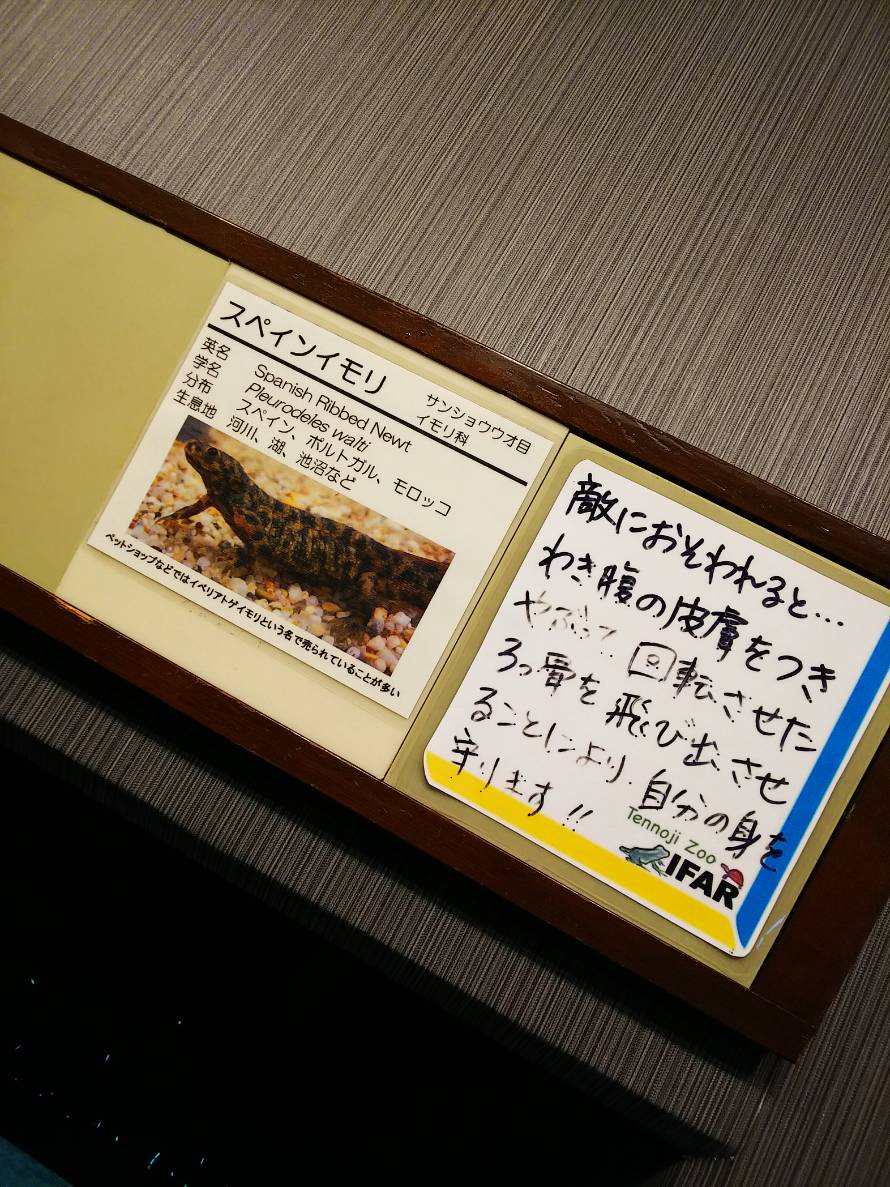 スペインイモリ
サンショウウオ目
イモリ科
英名 Spanish Ribbed Newt
学名 Pleurodeles waltl
分布 スペイン、ポルトガル、モロッコ
生息地 河川、湖、池沼など
ペットショップなどではイベリアトゲイモリという名で売られていることが多い
敵におそわれると…
わき腹の皮膚をつき
やぶって、回転させた
ろっ骨を飛び出させ
ることにより、自分の身を
守ります!!
Tennoji Zoo
IFAR